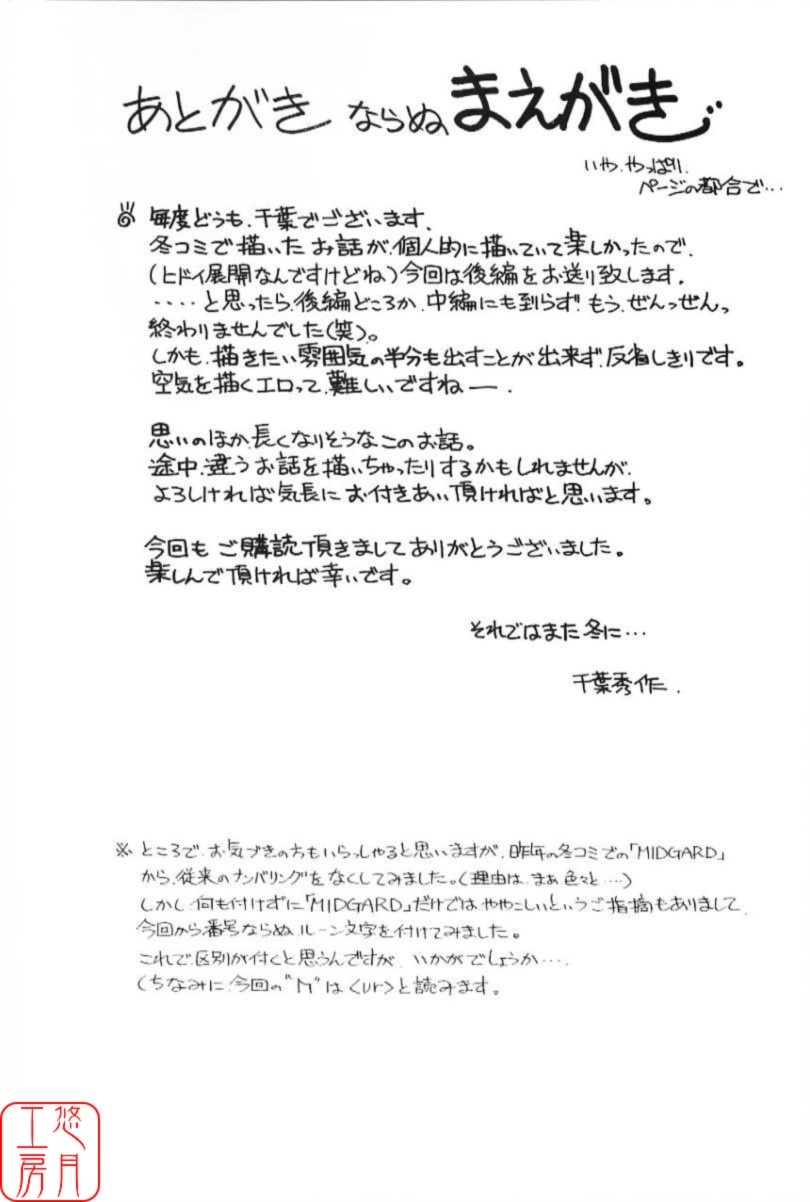 あとがき ならぬ、まえがき
いや、やっぱり、
ページの都合で…
毎度どうも、千葉でございます、
冬コミで描いたお話が、個人的に描いていて楽しかったので、
(ヒドイ展開なんですけどね)今回は後編をお送り致します、
‥‥と思ったら、後編どころか、中編にも到らず、もう、ぜんっぜんっ
終わりませんでした(笑)。
しかも、描きたい雰囲気の半分も出すことが出来ず、反省しきりです。
空気を描くエロって、難しいですねー、
思いのほか、長くなりそうなこのお話。
途中、違うお話を描いちゃったりするかもしれませんが、
よろしければ気長にお付きあい頂ければと思います。
今回もご購読頂きましてありがとうございました。
楽しんで頂ければ幸いです。
それではまた冬に…
千葉秀作、
※ ところで、お気づきの方もいらっしゃると思いますが、昨年の冬コミでの「MIDGARD」
から、従来のナンバリングをなくしてみました。(理由は、まぁ色々と‥‥)
しかし何も付けずに「MIDGARD」だけではややこしいというご指摘もありまして、
今回から番号ならぬ、ルーン文字を付けてみました。
これで、区別が付くと思うんですが、いかがでしょうか‥‥
(ちなみに、今回の"ᚢ"は<ur>と読みます。
悠月
工房